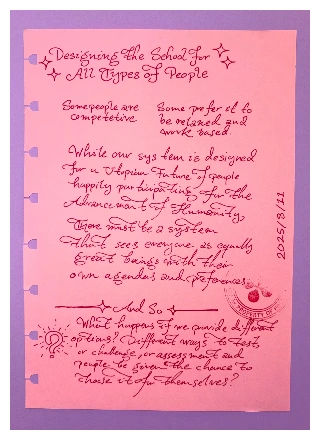 Designing the School for
All Types of People
Some people are
competetive
Some prefer it to
be relaxed and
work based.
While our system is designed
for a Utopian Future of people
happily participating for the
Advancement of Humanity,
There must be a system
that sees everyone as equally
great beings with their
own agendas and preferences.
2025/9/11
PROPERTY OF
And So
What happens if we provide different
options? Different ways to test,
or challenge, or assessment and
people be given the chance to
choose it for themselves?